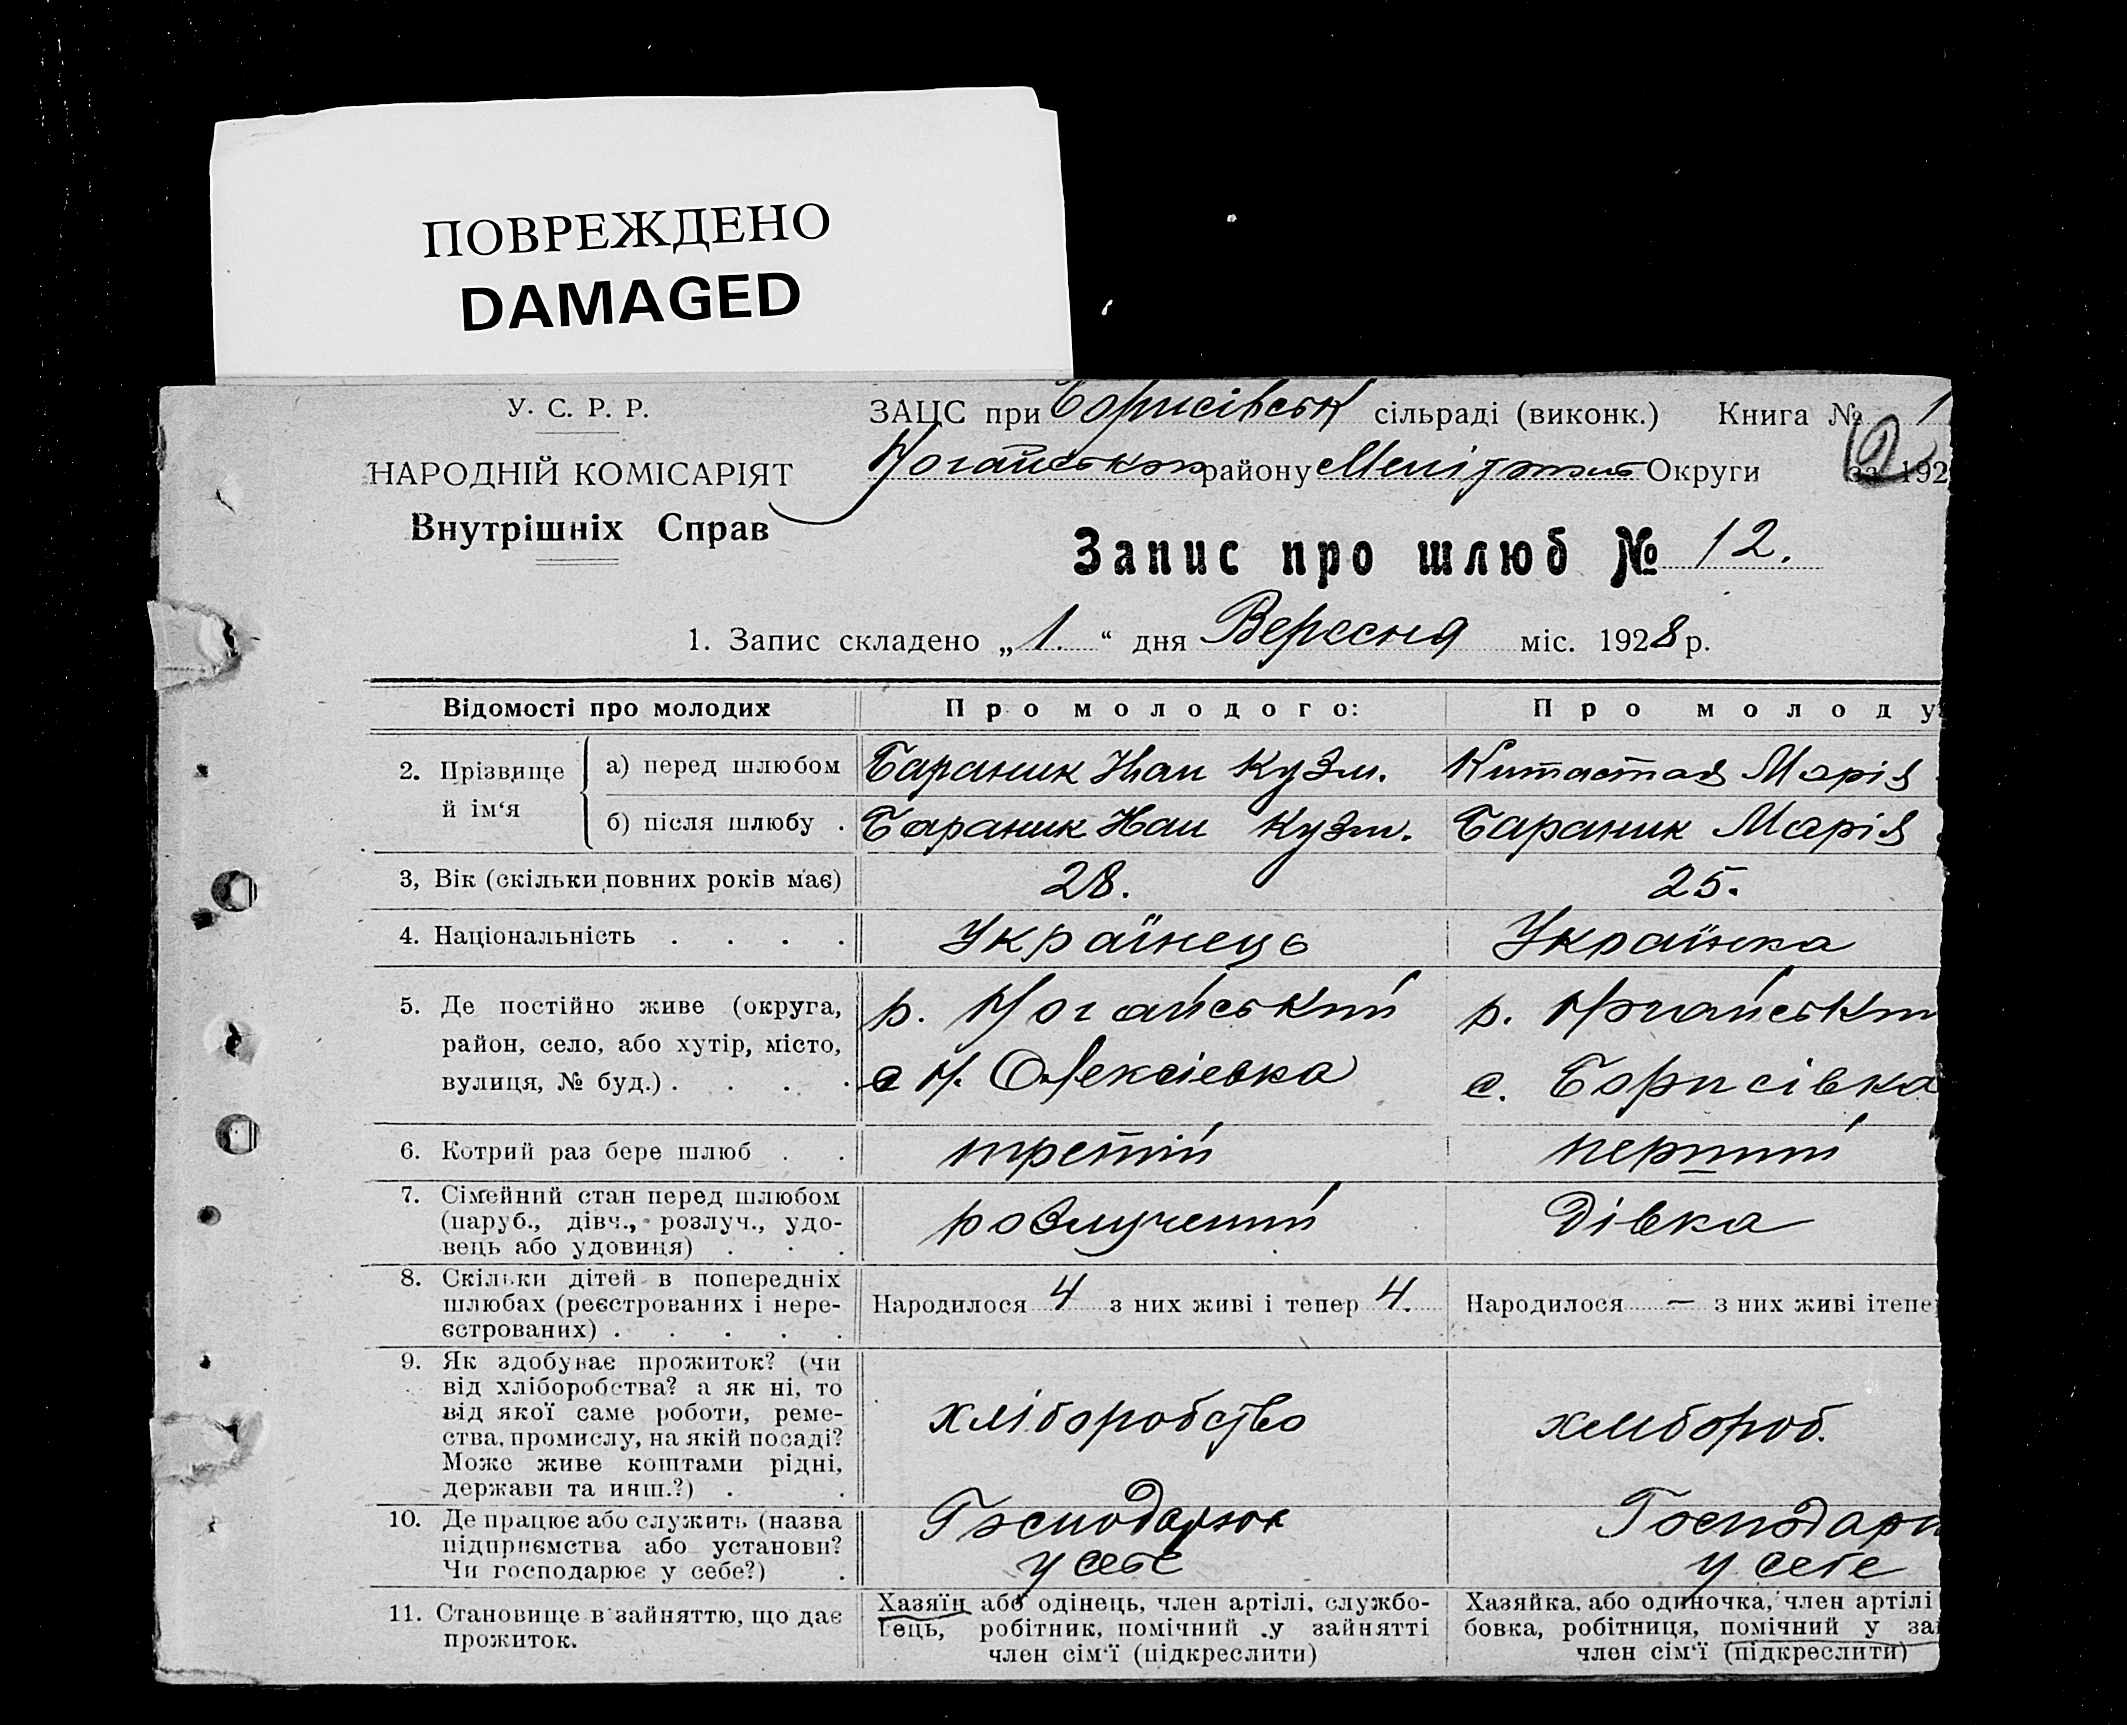 ПОВРЕЖДЕНО
DAMAGED
У. С. Р. Р.
НАРОДНІЙ КОМІСАРІЯТ
Внутрішніх Справ
ЗАЦС при Борисівськ сільраді (виконк.) Книга № 1
Ногайського району Меліт Округи за 192
Запис про шлюб № 12.
1. Запис складено „ 1. “ дня Вересня міс. 1928 р.
Відомості про молодих
Про молодого:
Про молоду
2. Прізвище й ім‘я
а) перед шлюбом
Бараник Кузм.
Китастая Марія
б) після шлюбу .
Бараник Кузм.
Бараник Марія
3, Вік (скільки повних років має)
28.
25.
4. Національність . . . .
Українець
Українка
5. Де постійно живе (округа,
район, село, або хутір, місто,
вулиця, № буд.) . . . .
р. Ногайський
с Н. Олексіевка
р. Ногайськи
с. Борисівка
6. Котрий раз бере шлюб . .
третій
перший
7. Сімейний стан перед шлюбом
(паруб., дівч., розлуч., удо-
вець або удовиця) . . .
розлучений
Дівка
8. Скільки дітей в попередніх
шлюбах (реєстрованих і нере-
єстрованих) . . . . .
Народилося 4 з них живі і тепер 4.
Народилося — з них живі ітепе
9. Як здобуває прожиток? (чи
від хліборобства? а як ні, то
від якої саме роботи, реме-
ства, промислу, на якій посаді?
Може живе коштами рідні,
держави та инш.?) . .
хліборобство
хлибороб.
10. Де працює або служить (назва
підприємства або установи?
Чи господарює у себе?) .
Господарює
у себе
Господарю
у себе
11. Становище в зайняттю, що дає
прожиток.
Хазяїн або одінець, член артілі, службо-
вець, робітник, помічний у зайнятті
член сім‘ї (підкреслити)
Хазяйка, або одиночка, член артілі
бовка, робітниця, помічний у за
член сім‘ї (підкреслити)